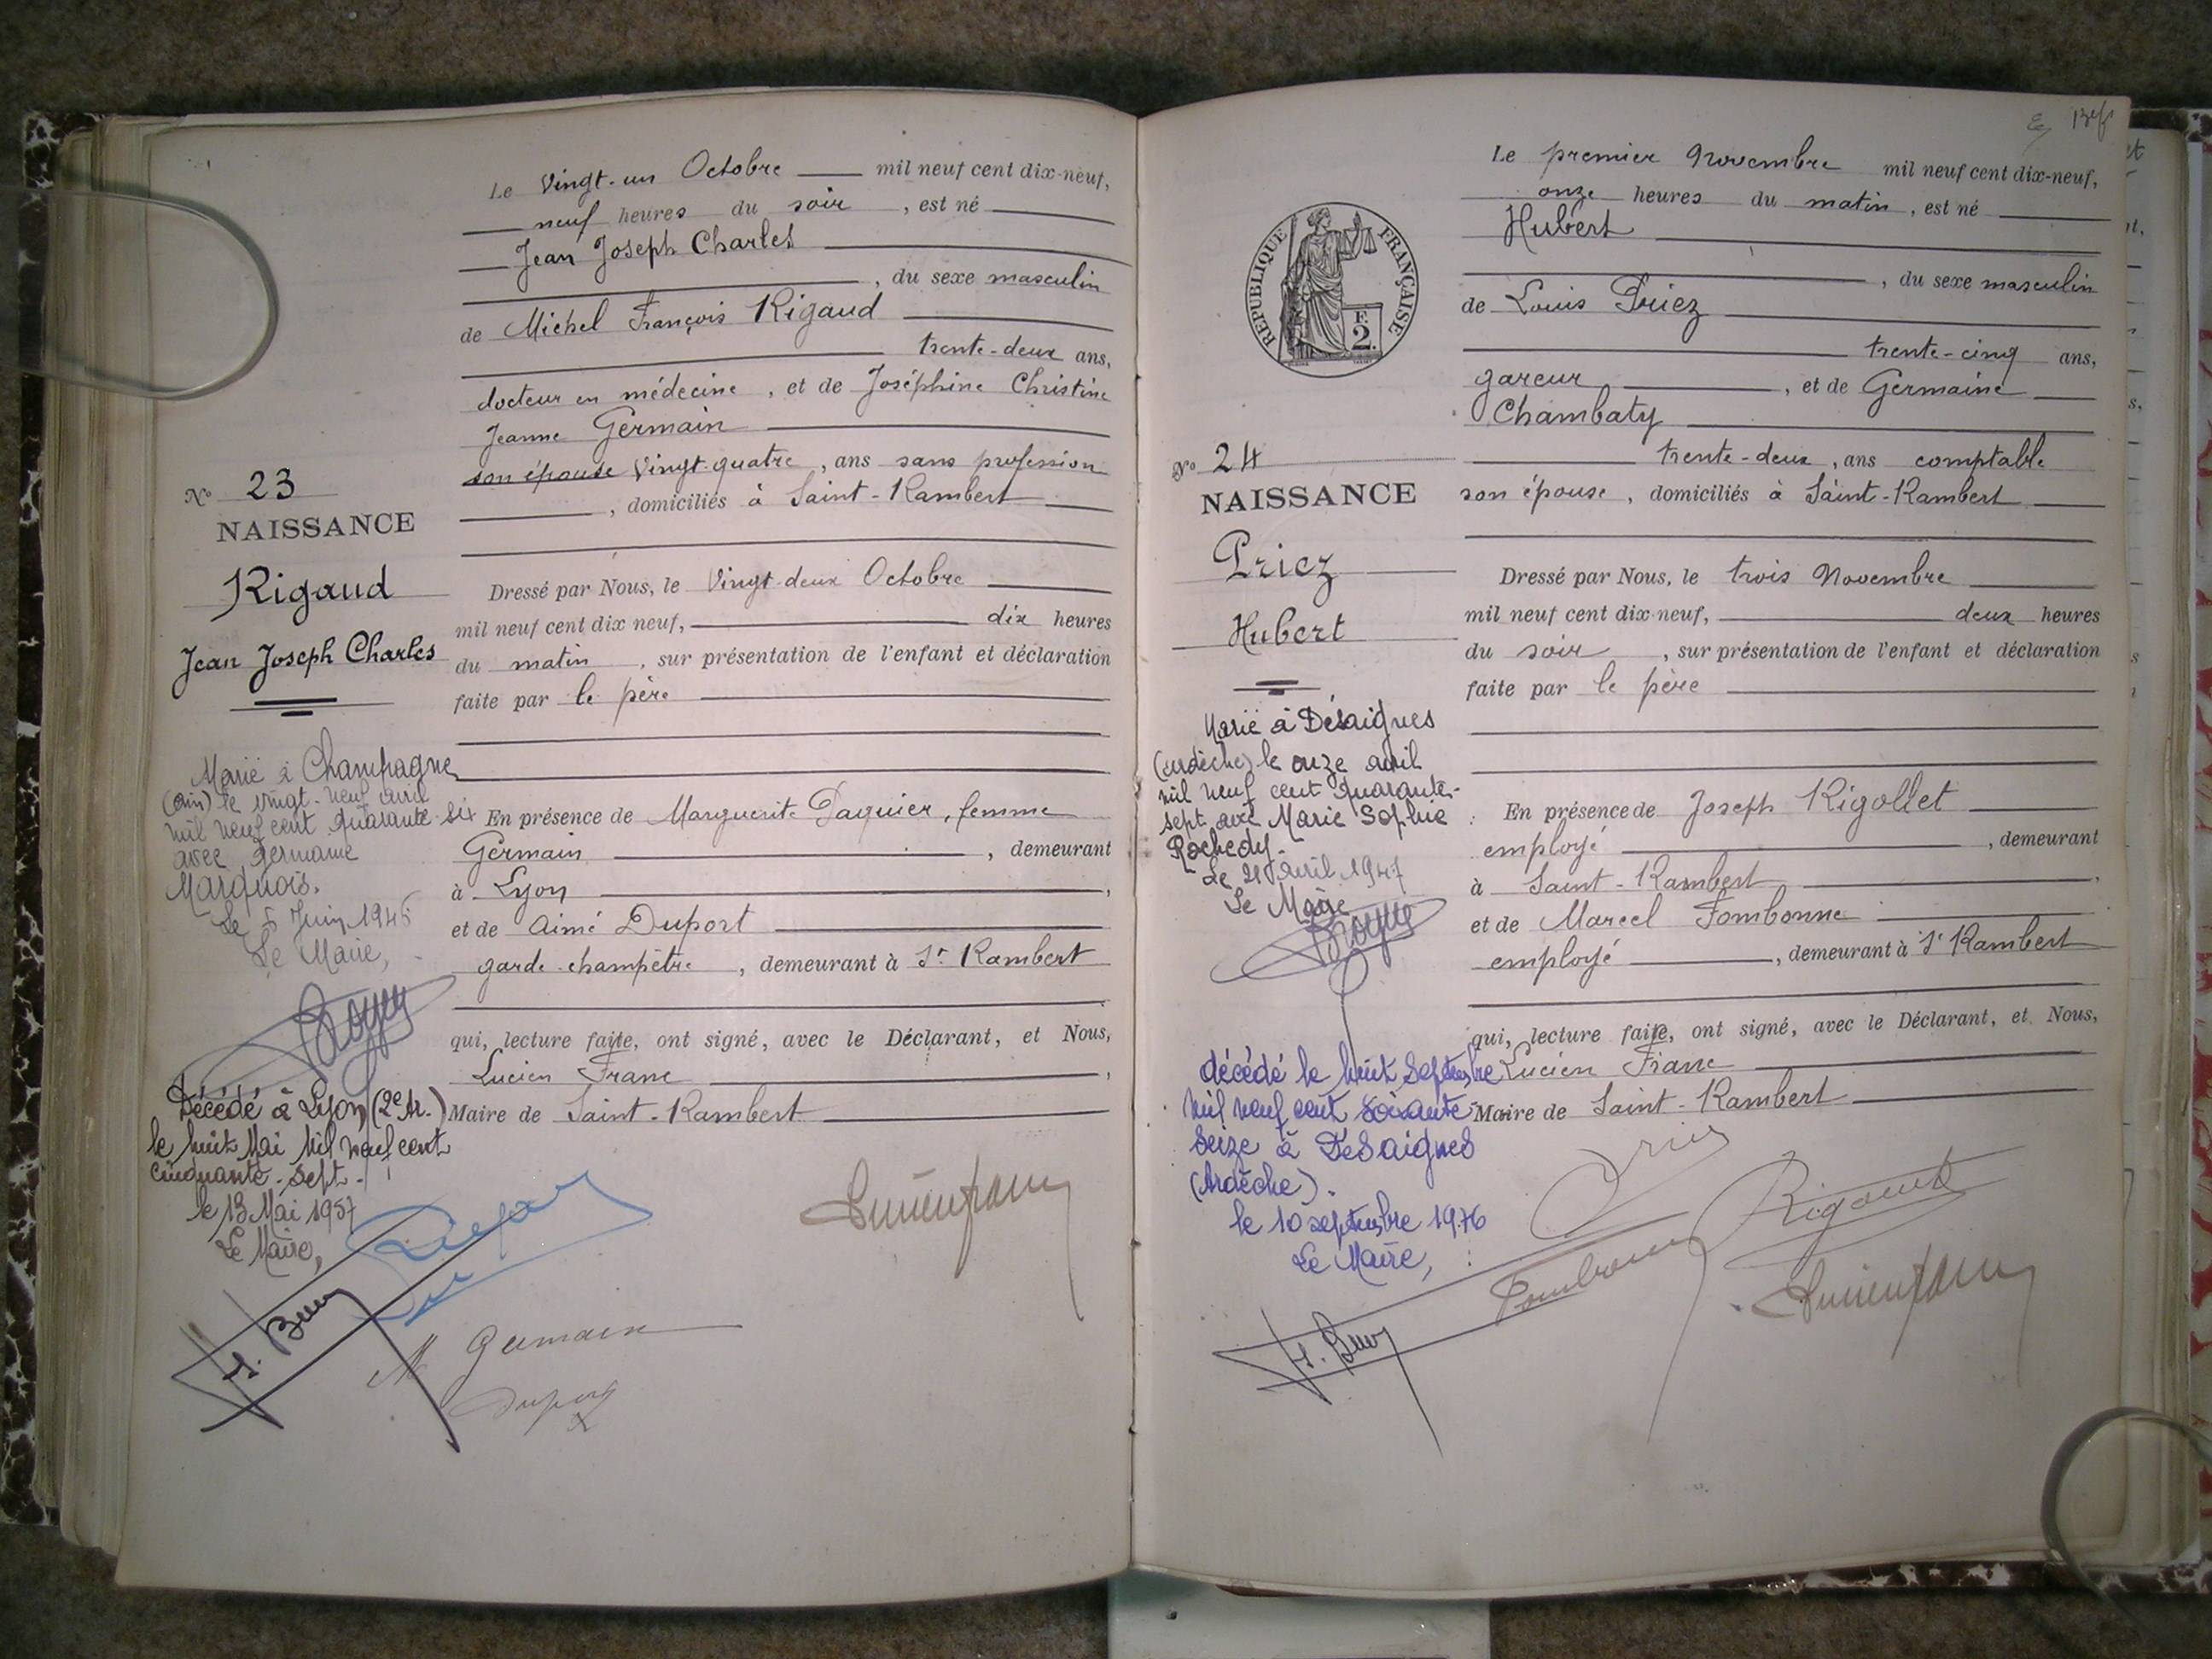 Le Vingt-un Octobre mil neuf cent dix-neuf,
neuf heures du soir, est né
Jean Joseph Charles
, du sexe masculin
de Michel François Rigaud
trente-deux ans,
docteur en médecine, et de Joséphine Christine
Jeanne Germain
son épouse Vingt-quatre, ans sans profession
, domiciliés à Saint-Rambert
N° 23
NAISSANCE
Rigaud
Jean Joseph Charles
Dressé par Nous, le Vingt-deux Octobre
mil neuf cent dix neuf, dix heures
du matin, sur présentation de l'enfant et déclaration
faite par le père
Marié à Champagne
(Ain) le vingt-neuf avril
mil neuf cent quarante-six
avec Germaine
Marquois.
Le Juin 1946
Le Maire,
En présence de Marguerite Paquier, femme
Germain, demeurant
à Lyon,
et de Aimé Duport
garde-champêtre, demeurant à St Rambert
qui, lecture faite, ont signé, avec le Déclarant, et Nous,
Lucien Franc,
Maire de Saint-Rambert
Décédé à Lyon (2e Ar.)
le huit Mai Mil neuf cent
cinquante-sept.
le 13 Mai 1957
Le Maire,
M Germain
Duport
Lucien Franc
Le premier Novembre mil neuf cent dix-neuf,
onze heures du matin, est né
Hubert
, du sexe masculin
de Louis Priez
trente-cinq ans,
gareur, et de Germaine
Chambaty
trente-deux, ans comptable
son épouse, domiciliés à Saint-Rambert
RÉPUBLIQUE FRANÇAISE
F.
2.
N° 24
NAISSANCE
Priez
Hubert
Dressé par Nous, le trois Novembre
mil neuf cent dix-neuf, deux heures
du soir, sur présentation de l'enfant et déclaration
faite par le père
Marié à Désaignes
(Ardèche) le onze avril
mil neuf cent quarante-
sept avec Marie Sophie
Rochedy.
Le 21 Avril 1947
Le Maire
En présence de Joseph Rigollet
employé, demeurant
à Saint-Rambert,
et de Marcel Fombonne
employé, demeurant à St Rambert
qui, lecture faite, ont signé, avec le Déclarant, et Nous,
Lucien Franc
Maire de Saint-Rambert
décédé le huit Septembre
mil neuf cent soixante-
seize à Desaignes
(Ardèche).
le 10 septembre 1976
Le Maire,
Priez
Fombonne
Lucien Franc